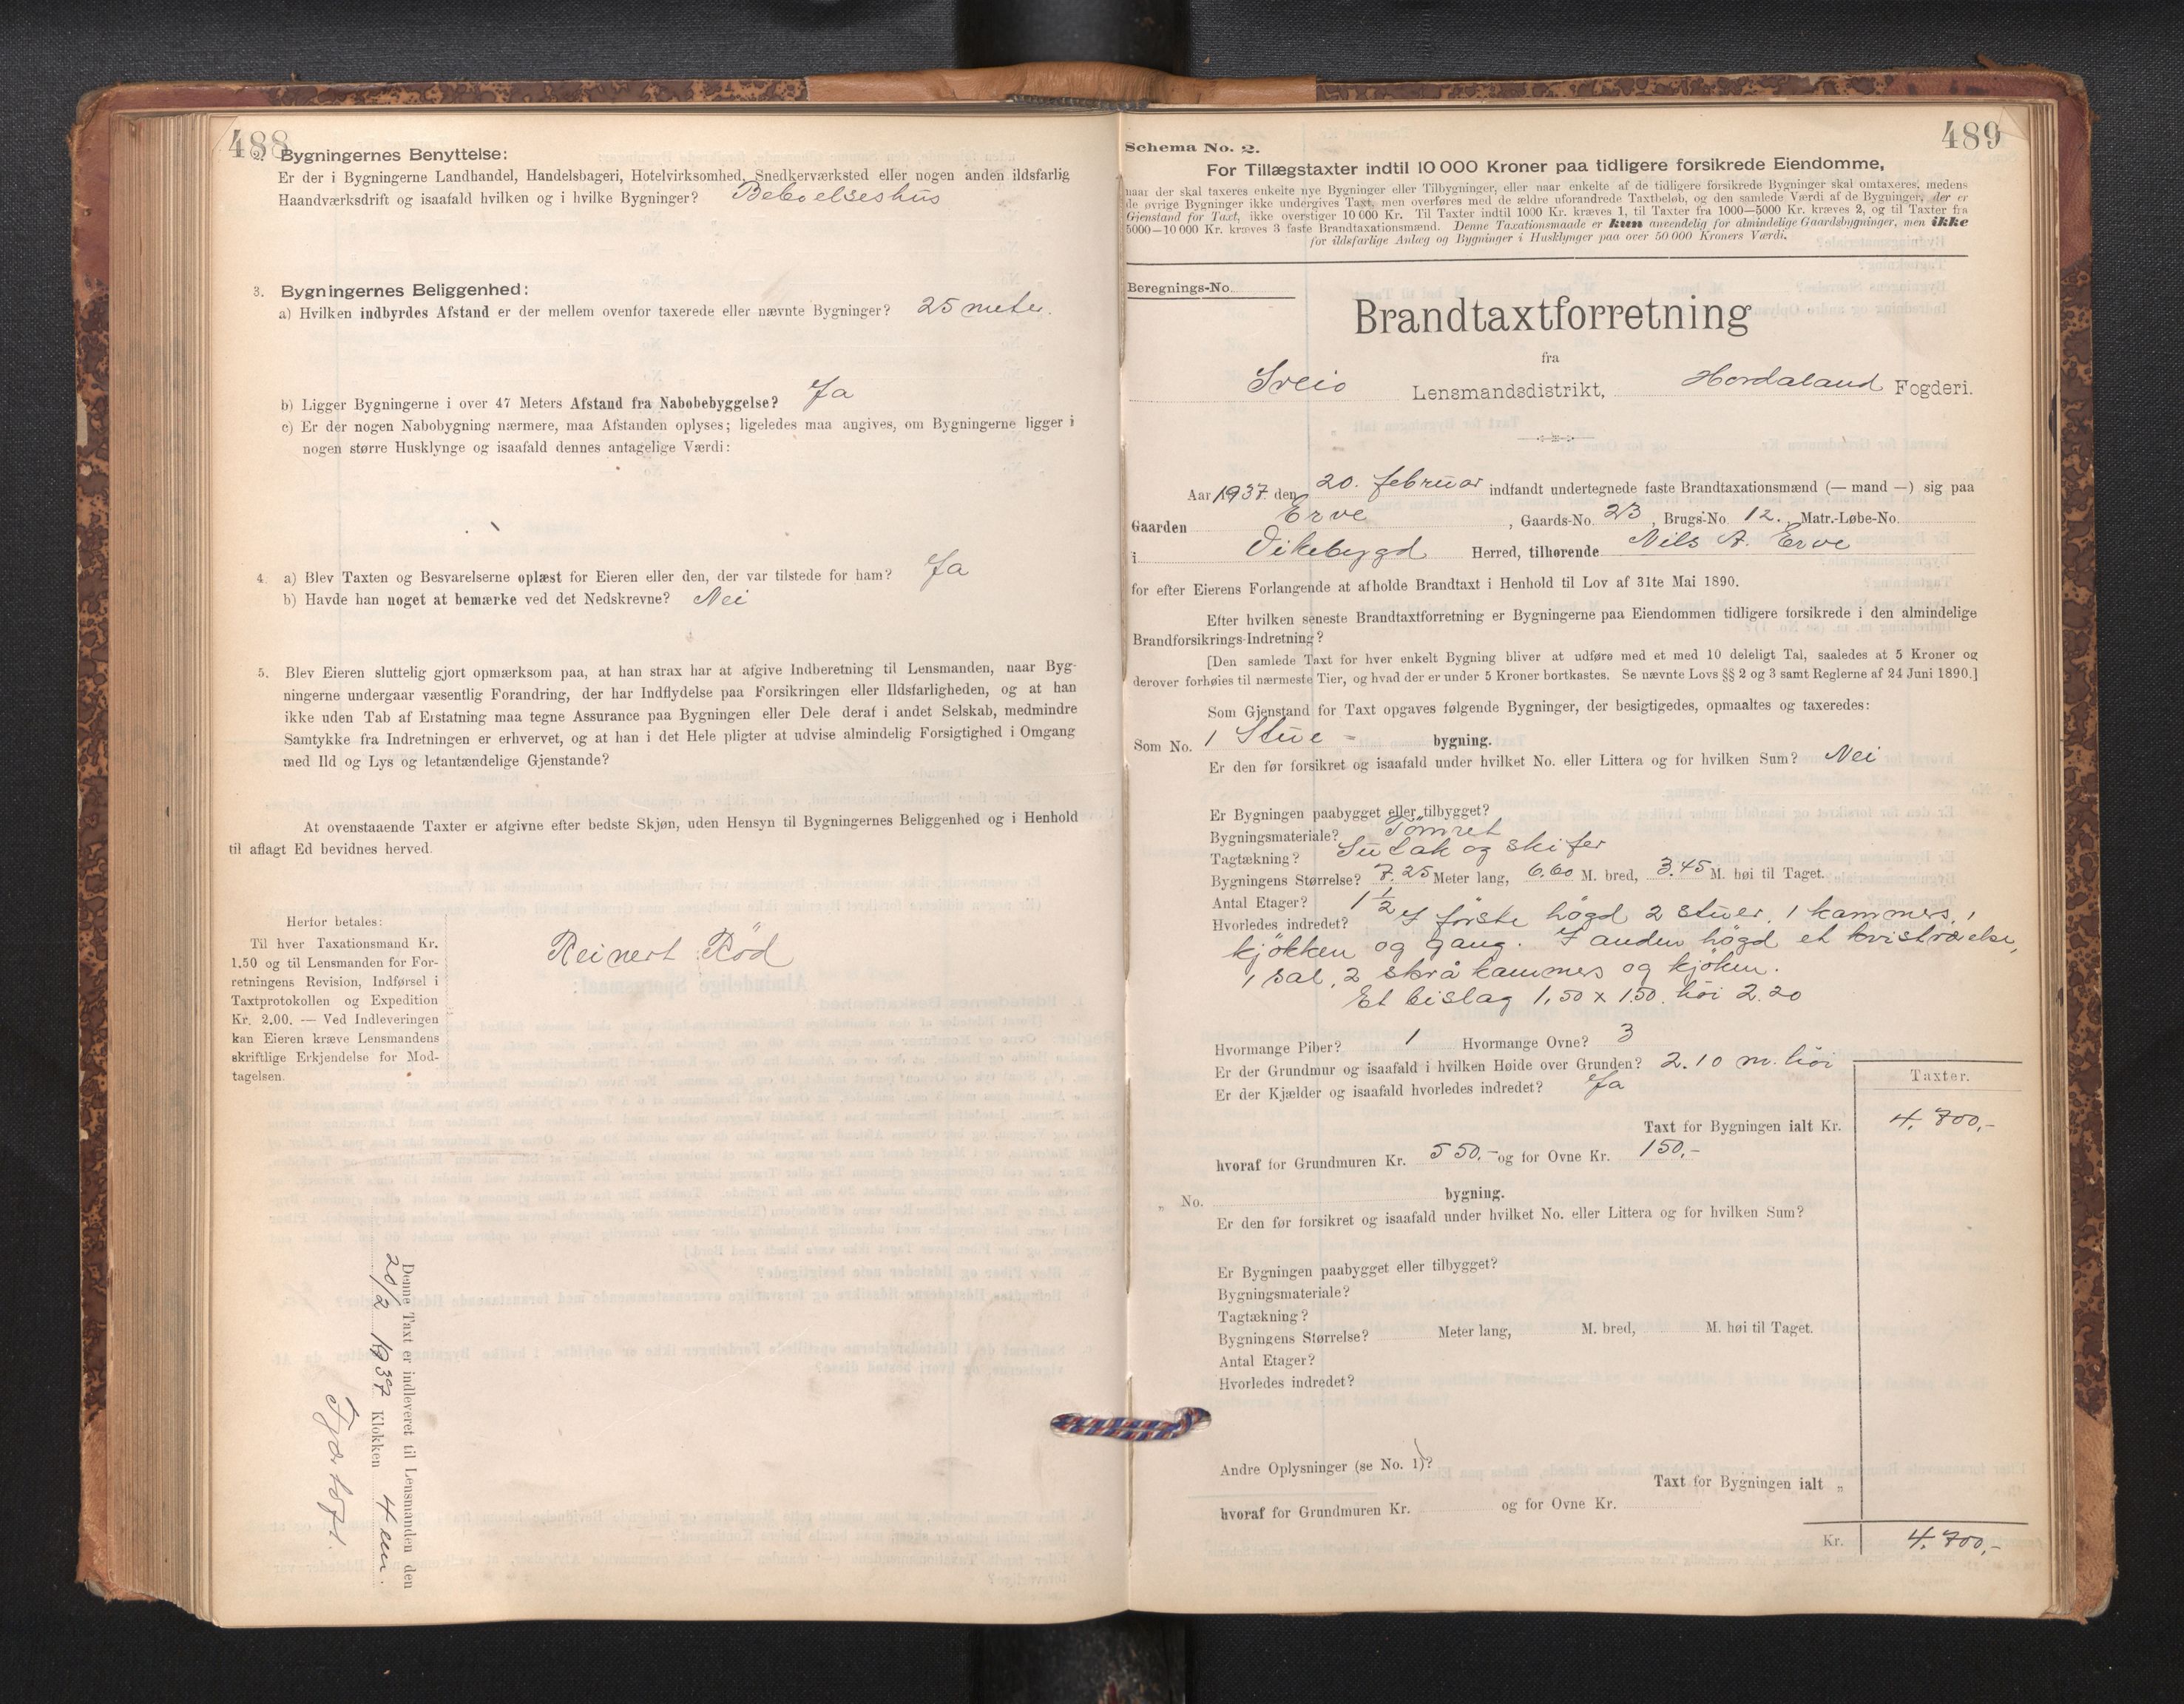 488
2. Bygningernes Benyttelse:
Er der i Bygningerne Landhandel, Handelsbageri, Hotelvirksomhed, Snedkerværksted eller nogen anden ildsfarlig
Haandværksdrift og isaafald hvilken og i hvilke Bygninger? Beboelseshus
3. Bygningernes Beliggenhed:
a) Hvilken indbyrdes Afstand er der mellem ovenfor taxerede eller nævnte Bygninger? 25 meter.
b) Ligger Bygningerne i over 47 Meters Afstand fra Nabobebyggelse? Ja
c) Er der nogen Nabobygning nærmere, maa Afstanden oplyses; ligeledes maa angives, om Bygningerne ligger i
nogen større Husklynge og isaafald dennes antagelige Værdi:
4. a) Blev Taxten og Besvarelserne oplæst for Eieren eller den, der var tilstede for ham? Ja
b) Havde han noget at bemærke ved det Nedskrevne? Nei
5. Blev Eieren sluttelig gjort opmærksom paa, at han strax har at afgive Indberetning til Lensmanden, naar Byg-
ningerne undergaar væsentlig Forandring, der har Indflydelse paa Forsikringen eller Ildsfarligheden, og at han
ikke uden Tab af Erstatning maa tegne Assurance paa Bygningen eller Dele deraf i andet Selskab, medmindre
Samtykke fra Indretningen er erhvervet, og at han i det Hele pligter at udvise almindelig Forsigtighed i Omgang
med Ild og Lys og letantændelige Gjenstande?
At ovenstaaende Taxter er afgivne efter bedste Skjøn, uden Hensyn til Bygningernes Beliggenhed og i Henhold
til aflagt Ed bevidnes herved.
Herfor betales:
Til hver Taxationsmand Kr.
1.50 og til Lensmanden for For-
retningens Revision, Indførsel i
Taxtprotokollen og Expedition
Kr. 2.00. — Ved Indleveringen
kan Eieren kræve Lensmandens
skriftlige Erkjendelse for Mod-
tagelsen.
Reinert Rød
Denne Taxt er indleveret til Lensmanden den
20/2 1937 Klokken 4 em.
489
Schema No. 2.
For Tillægstaxter indtil 10 000 Kroner paa tidligere forsikrede Eiendomme,
naar der skal taxeres enkelte nye Bygninger eller Tilbygninger, eller naar enkelte af de tidligere forsikrede Bygninger skal omtaxeres, medens
de øvrige Bygninger ikke undergives Taxt, men overføres med de ældre uforandrede Taxtbeløb, og den samlede Værdi af de Bygninger, der er
Gjenstand for Taxt, ikke overstiger 10 000 Kr. Til Taxter indtil 1000 Kr. kræves 1, til Taxter fra 1000—5000 Kr. kræves 2, og til Taxter fra
5000—10 000 Kr. kræves 3 faste Brandtaxationsmænd. Denne Taxationsmaade er kun anvendelig for almindelige Gaardsbygninger, men ikke
for ildsfarlige Anlæg og Bygninger i Husklynger paa over 50 000 Kroners Værdi.
Beregnings-No.
Brandtaxtforretning
fra
Sveio Lensmandsdistrikt, Hordaland Fogderi.
Aar 1937 den 20. februar indfandt undertegnede faste Brandtaxationsmænd (— mand —) sig paa
Gaarden Erve, Gaards-No. 23, Brugs-No. 12. Matr.-Løbe-No.
i Vikebygd Herred, tilhørende Nils A. Erve
for efter Eierens Forlangende at afholde Brandtaxt i Henhold til Lov af 31te Mai 1890.
Efter hvilken seneste Brandtaxtforretning er Bygningerne paa Eiendommen tidligere forsikrede i den almindelige
Brandforsikrings-Indretning?
[Den samlede Taxt for hver enkelt Bygning bliver at udføre med et med 10 deleligt Tal, saaledes at 5 Kroner og
derover forhøies til nærmeste Tier, og hvad der er under 5 Kroner bortkastes. Se nævnte Lovs §§ 2 og 3 samt Reglerne af 24 Juni 1890.]
Som Gjenstand for Taxt opgaves følgende Bygninger, der besigtigedes, opmaaltes og taxeredes:
Som No. 1 Stue - bygning.
Er den før forsikret og isaafald under hvilket No. eller Littera og for hvilken Sum? Nei
Er Bygningen paabygget eller tilbygget?
Bygningsmateriale? Tömret
Tagtækning? Sutak og skifer
Bygningens Størrelse? 7.25 Meter lang, 6.60 M. bred, 3.45 M. høi til Taget.
Antal Etager? 1 1/2
Hvorledes indredet? I första högd 2 stuer, 1 kammers, 1
kjökken og gang. I anden högd et kvistværelse,
1 sal, 2 skråkammers og kjöken.
Et bislag 1,50 x 1.50. höi 2.20
Hvormange Piber? 1 Hvormange Ovne? 3
Er der Grundmur og isaafald i hvilken Høide over Grunden? 2.10 m. höi
Er der Kjælder og isaafald hvorledes indredet? Ja
Taxter.
Taxt for Bygningen ialt Kr. 4.700,-
hvoraf for Grundmuren Kr. 550.- og for Ovne Kr. 150,-
„ No. bygning.
Er den før forsikret og isaafald under hvilket No. eller Littera og for hvilken Sum?
Er Bygningen paabygget eller tilbygget?
Bygningsmateriale?
Tagtækning?
Bygningens Størrelse? Meter lang, M. bred, M. høi til Taget.
Antal Etager?
Hvorledes indredet?
Andre Oplysninger (se No. 1)?
Taxt for Bygningen ialt „
hvoraf for Grundmuren Kr. og for Ovne Kr.
Kr. 4.700,-